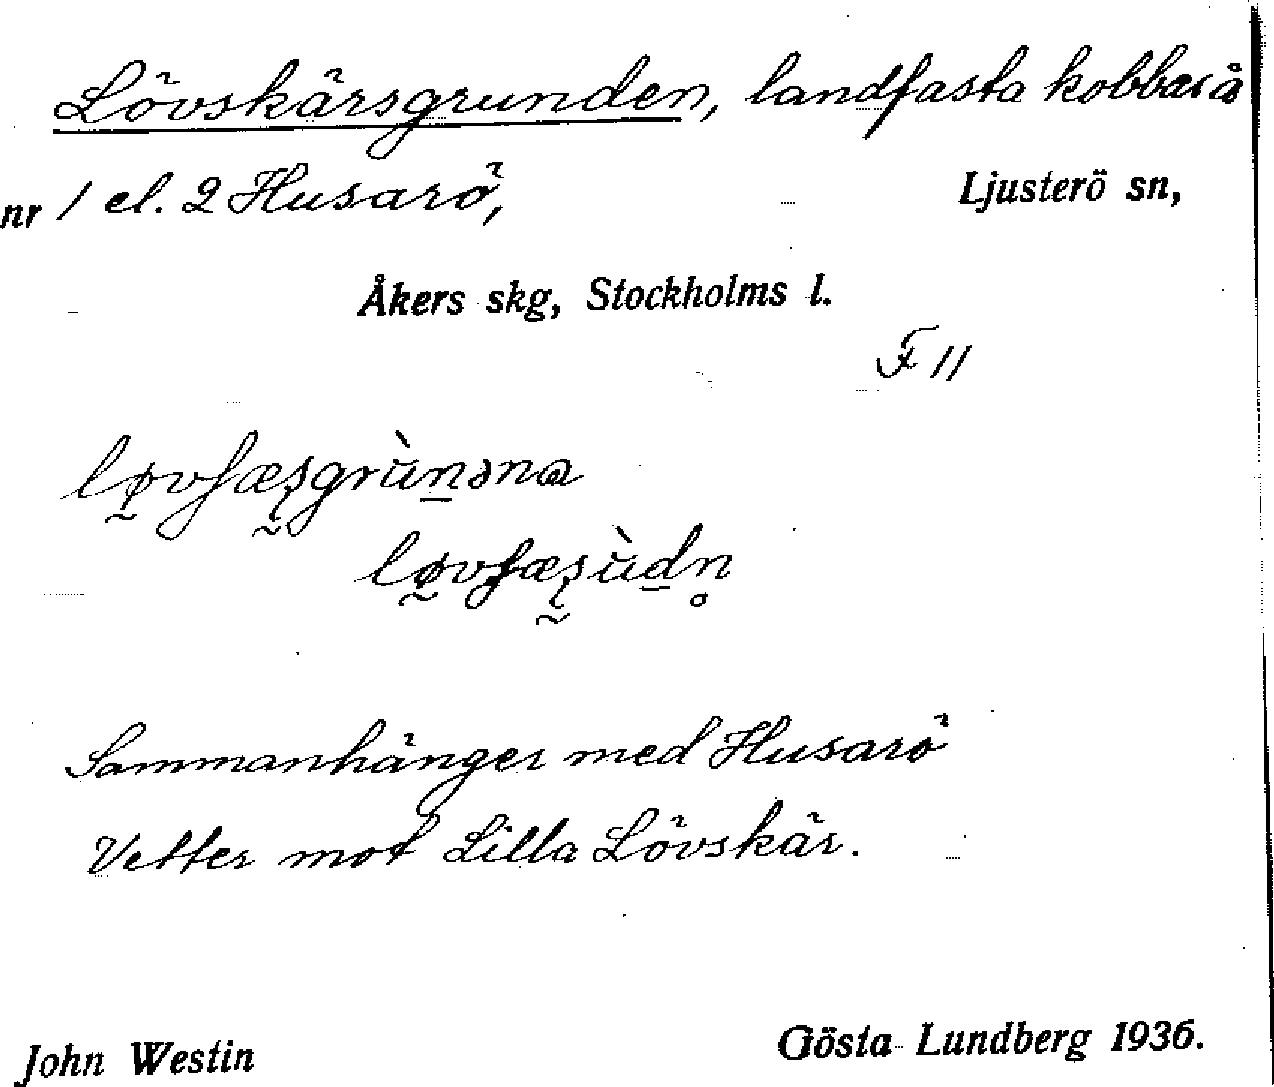 Lövskärsgrunden, landfasta kobbar å
nr 1 el. 2 Husarö, Ljusterö sn,
Åkers skg, Stockholms l.
F 11
Sammanhänger med Husarö
Vetter mot Lilla Lövskär.
John Westin Gösta Lundberg 1936.